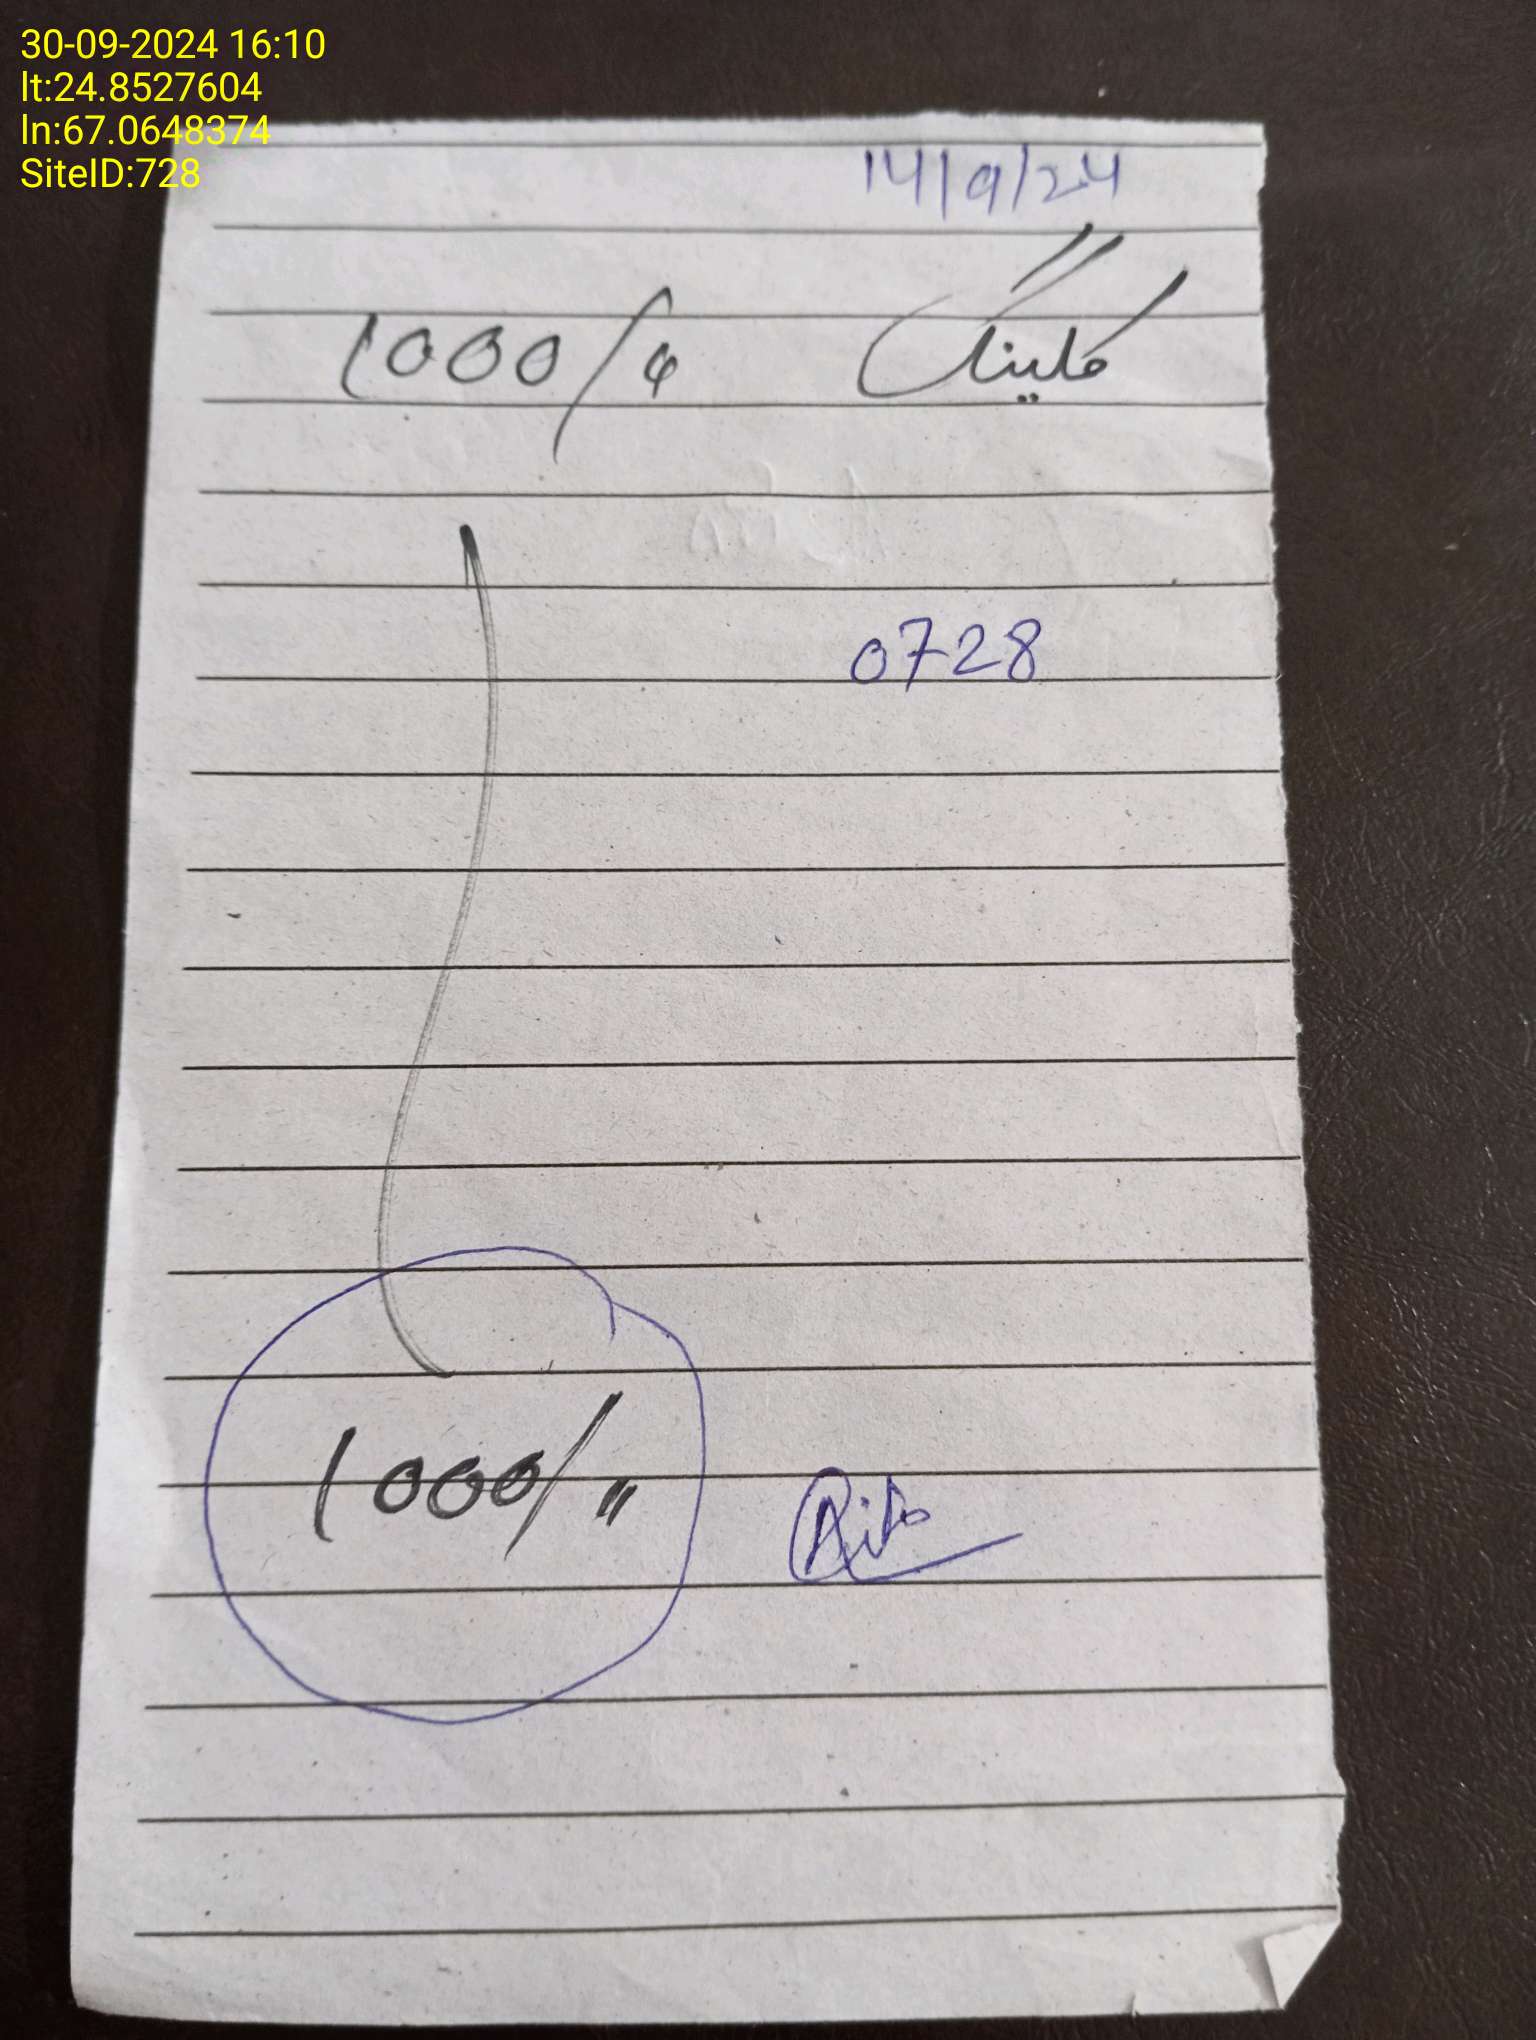 30-09-2024 16:10
lt:24.8527604
ln:67.0648374
SiteID:728
14/9/24
1000/
0728
1000/"